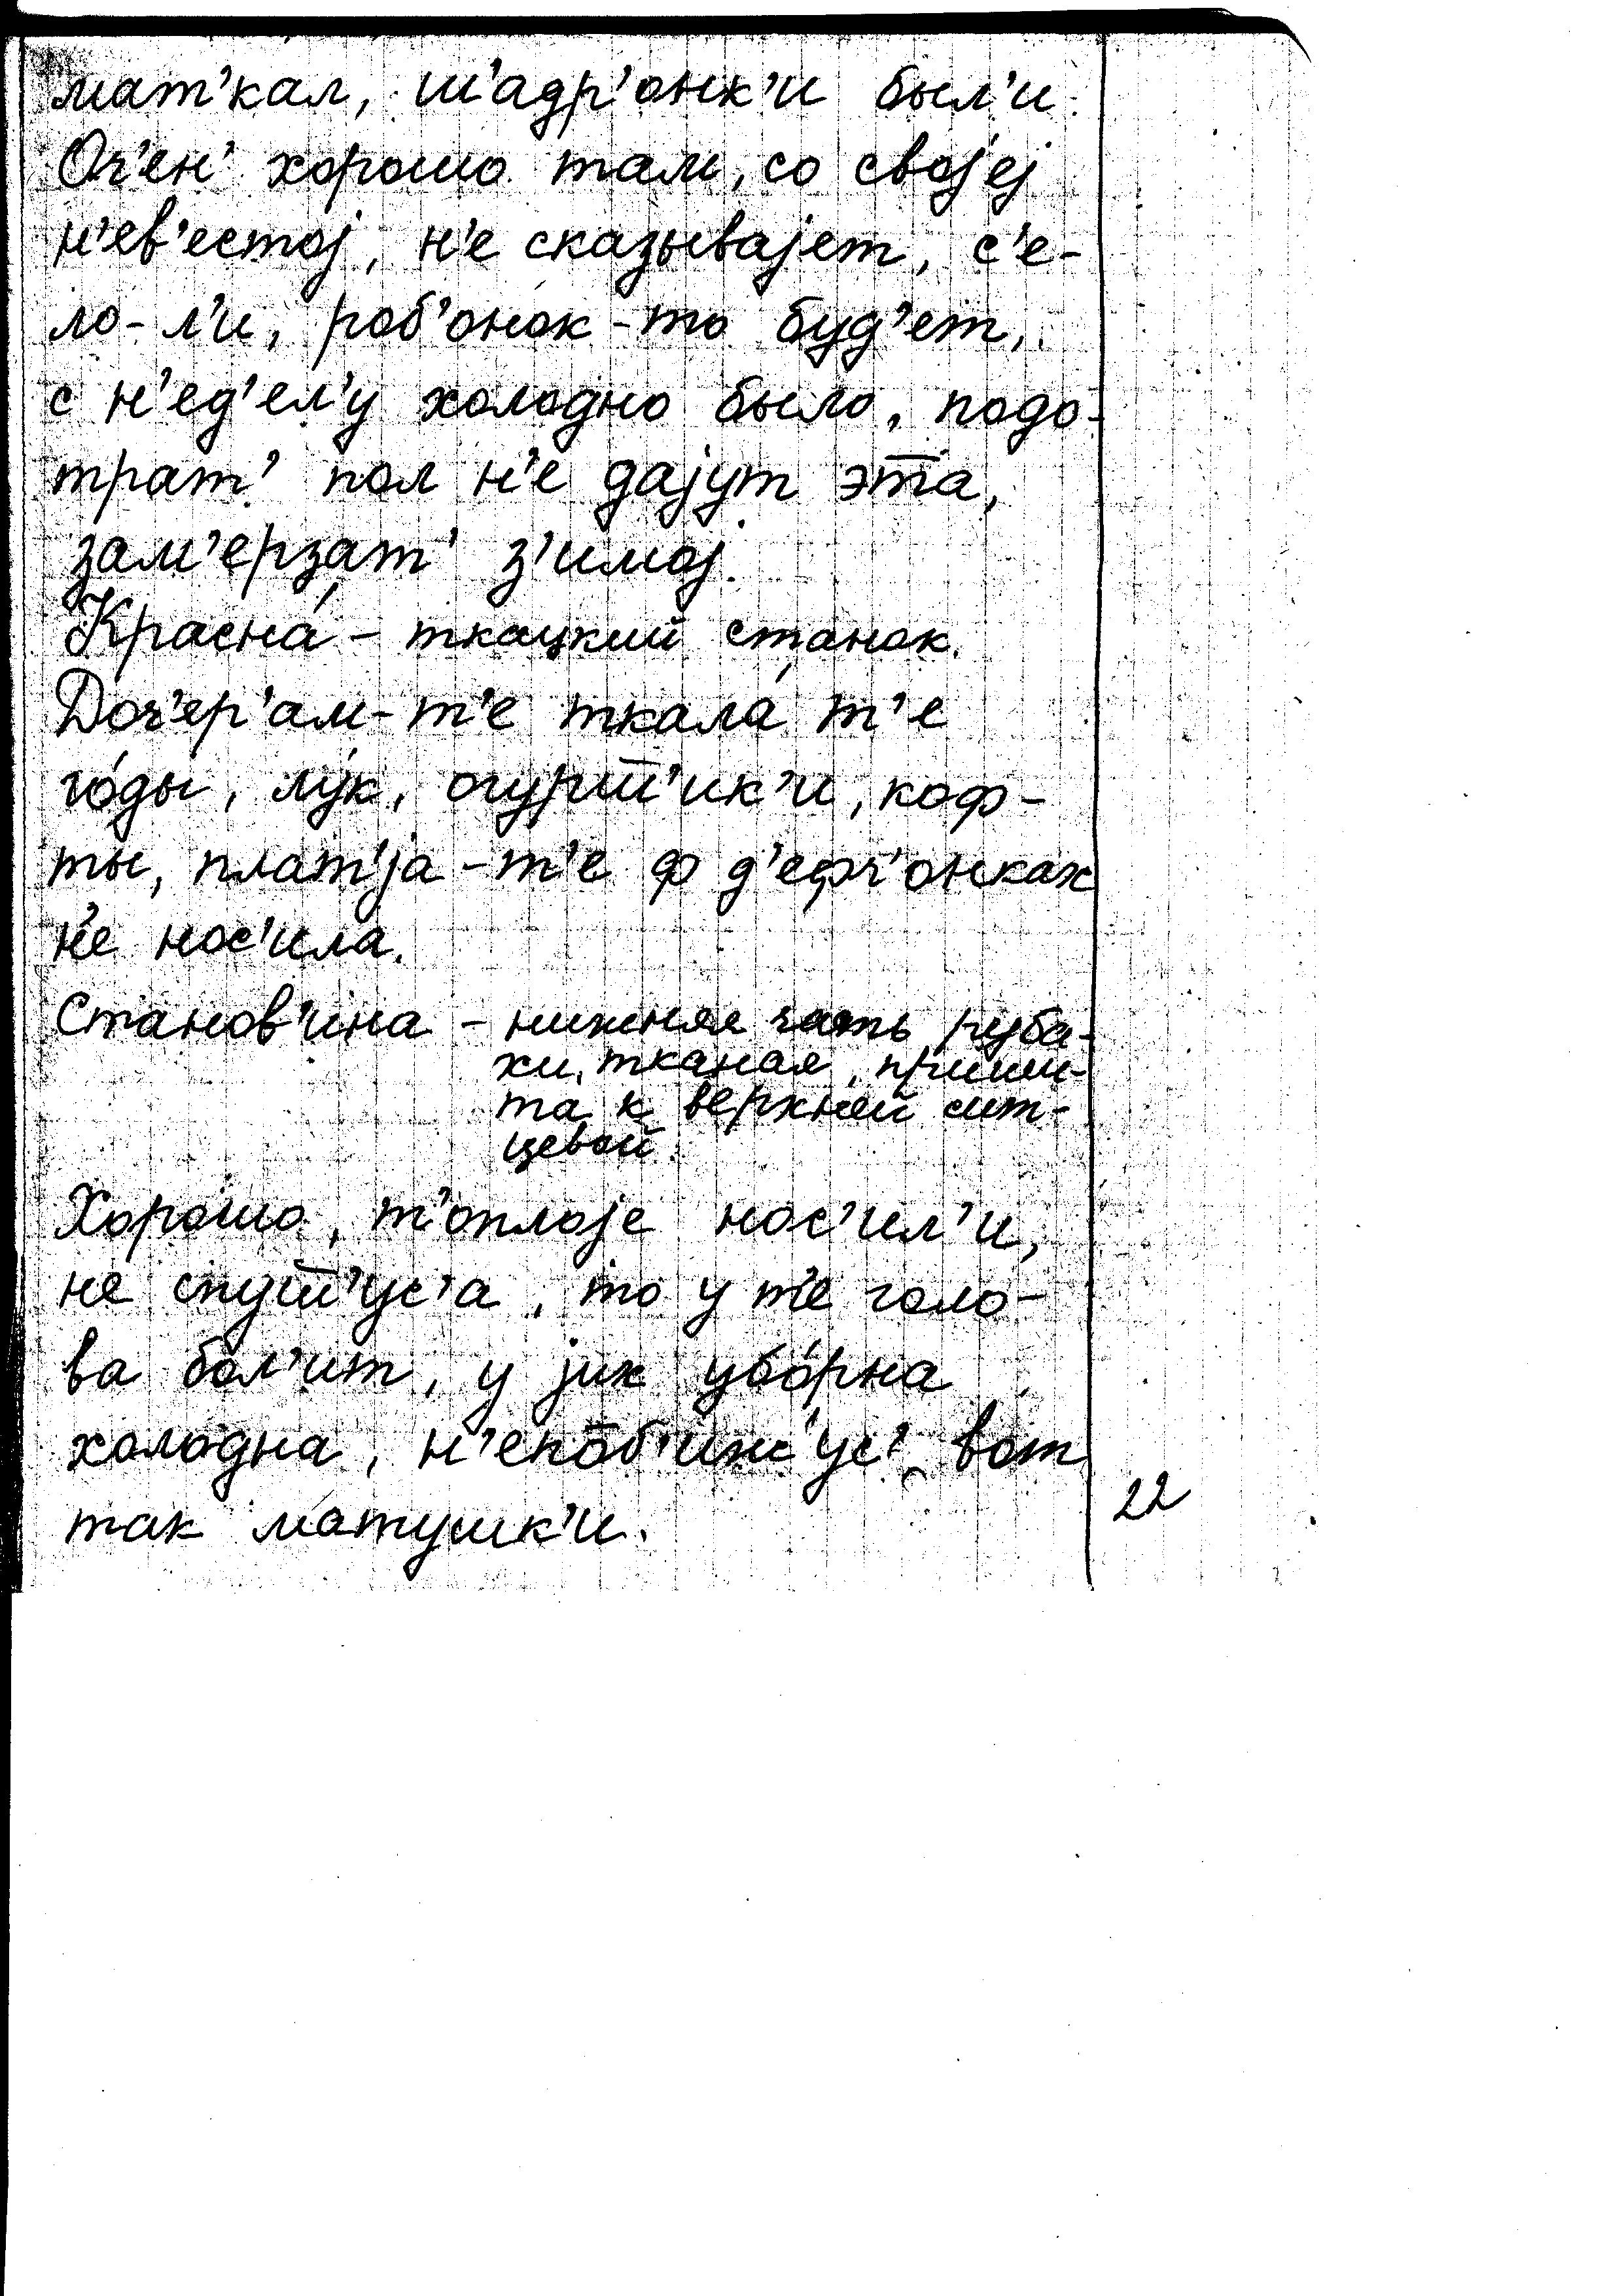 мат'кал, ш'адр'онк'и был'и.
Оч'ен' хорошо там, со својеј
н'ев'естој, н'е сказывајет, с'е-
ло-л'и, роб'онок-то буд'ет,
с н'ед'ел'у холодно было, подо-
трат' пол н'е дајут эта,
зам'ерзат' з'имој.
Красна́ - ткацкий станок.
Доч'ер'ам-т'е ткала́ т'е
го́ды, лук, огурш̅'ик'и, коф-
ты, плат'јa-т'е ф д'ефч'онках
н'е нос'ила.
Станов'ина - нижняя часть руба-
хи, тканая, приши-
та к верхней сит-
цевой.
Хорошо, т'оплоје нос'ил'и,
не спуш̅'ус'а, то у т'е голо-
ва бол'ит, у јих убо́рна
холодна, н'епоб'иж'ус', вот
так матушк'и.
22